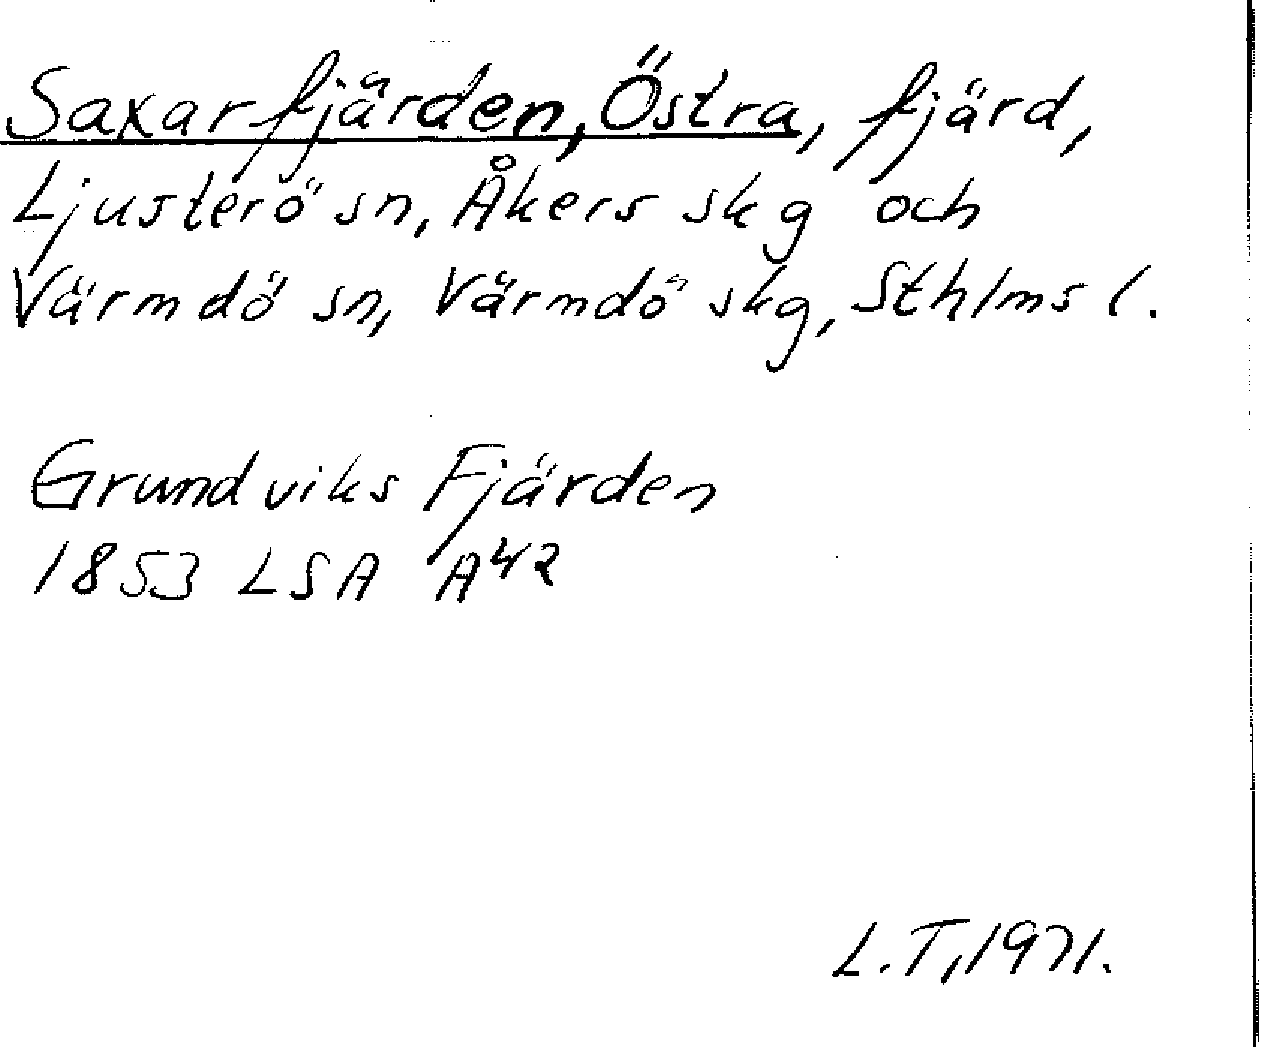 Saxarfjärden, Östra, fjärd,
Ljusterö sn, Åkers skg och
Värmdö sn, Värmdö skg, Sthlms l.
Grundviks Fjärden
1853 LSA A42
L.T, 1971.